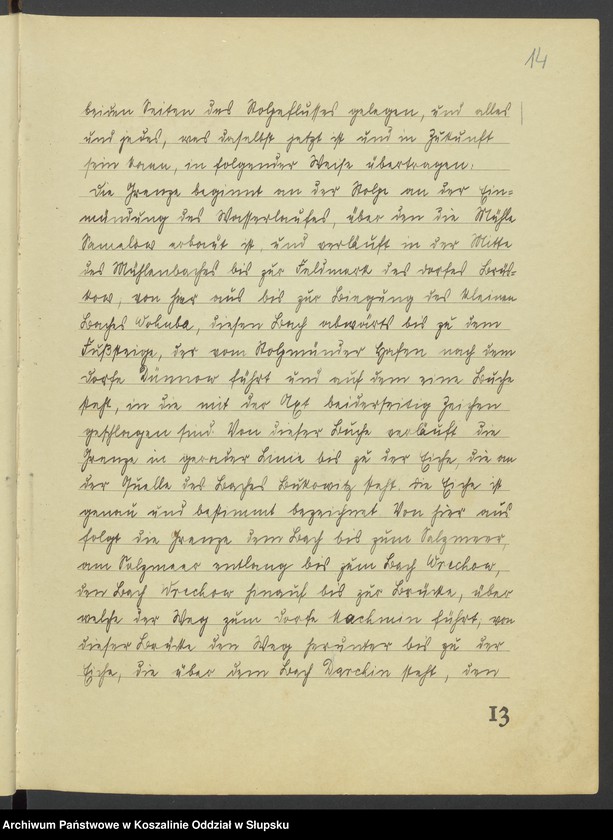 14
beiden Seiten des Stolpeflusses gelegen, und alles
und jedes, was daselbst jetzt ist und in Zukunft
sein kann, in folgender Weise übertragen:
Die Grenze beginnt an der Stolpe an der Ein-
mündung des Wasserlaufes, über den die Mühle
Samelow erbaut ist, und verläuft in der Mitte
des Mühlenbaches bis zur Feldmark des Dorfes Brüs-
kow, von hier aus bis zur Biegung des kleinen
Baches Wobnba, diesen Bach abwärts bis zu dem
Fußsteige, der vom Stolpmünder Hafen nach dem
Dorfe Dünnow führt und auf dem eine Buche
steht, in die mit der Axt beiderseitig Zeichen
geschlagen sind. Von dieser Buche verläuft die
Grenze in gerader Linie bis zu der Eiche, die an
der Quelle des Baches Bukowitz steht. Die Eiche ist
genau und bestimmt bezeichnet. Von hier aus
folgt die Grenze dem Bach bis zum Salzmeer,
am Salzmeer entlang bis zum Bach Wrechow,
den Bach Wrechow hinauf bis zur Brücke, über
welche der Weg zum Dorfe Kachmin führt, von
dieser Brücke den Weg herunter bis zu der
Eiche, die über dem Bach Darchin steht, den
13
Archiwum Państwowe w Koszalinie Oddział w Słupsku